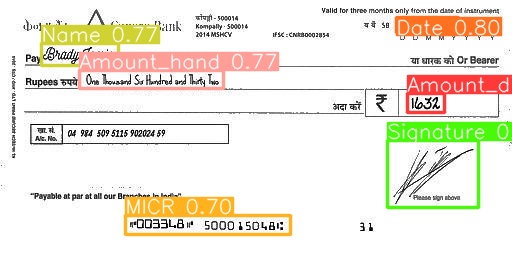 Bank
कोंपल्ली - 500014
Kompally - 500014
2014 MSHCV
IFSC : CNRB0002854
Valid for three months only from the date of instrument
Name 0.77
Date 0.80
Pay Brady
Amount_hand 0.77
या धारक को Or Bearer
Rupees रुपये One Thousand Six Hundred and Thirty Two
Amount_d
अदा करें ₹ 1632
खा. सं.
A/c. No. 04 984 509 5115 902024 59
Signature 0
Please sign above
"Payable at par at all our Branches in India"
MICR 0.70
⑈003348⑈ 500015048⑆ 31